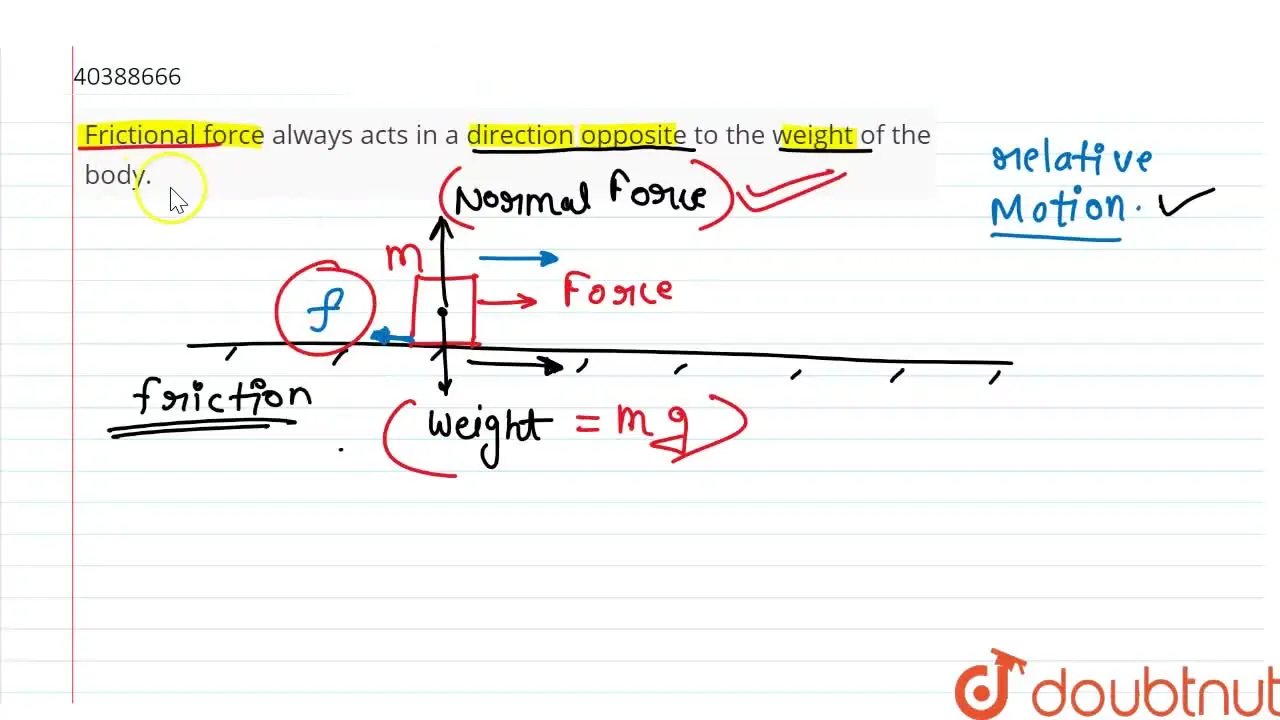 40388666
Frictional force always acts in a direction opposite to the weight of the
body.
relative
Motion.
(Normal Force)
m
Force
f
friction
(Weight = mg)
doubtnut